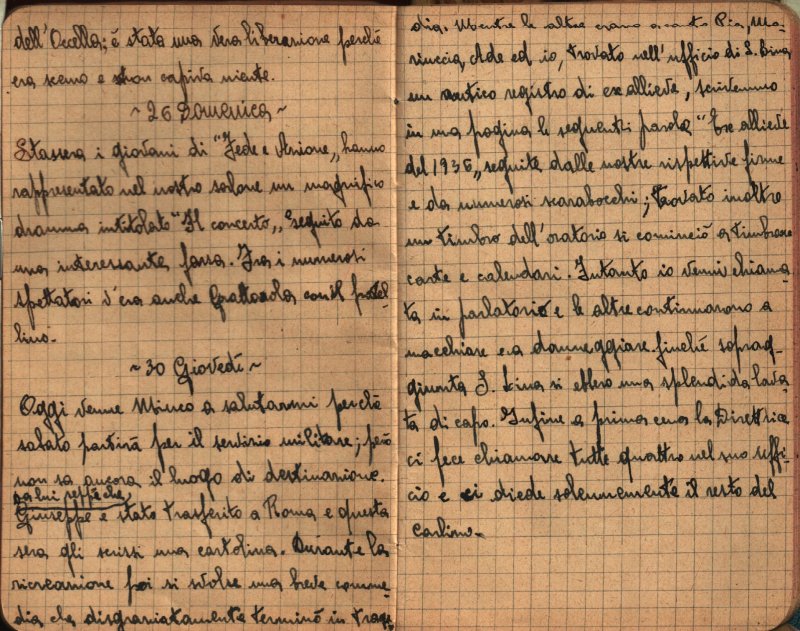 dell'Occella; é stata una vera liberazione perché
era scemo e non capiva niente.
~ 26 Domenica ~
Stassera i giovani di "Fede e Azione„ hanno
rappresentato nel nostro salone un magnifico
dramma intitolato "Il concerto„ seguito da
una interessante farsa. Fra i numerosi
spettatori v'era anche Grattarola con il fratel-
lino.
~ 30 Giovedí ~
Oggi venne Mirco a salutarmi perché
sabato partirà per il servizio militare; però
non sa ancora il luogo di destinazione.
da lui seppi che
Giuseppe è stato trasferito a Roma e questa
sera gli scrissi una cartolina. Durante la
ricreazione poi si svolse una breve comme-
dia che disgraziatamente terminò in trage-
dia. Mentre le altre erano a canto Pia, Ma-
riuccia, Ade ed io, trovato nell'ufficio di S. Lina
un antico registro di ex allieve, scrivemmo
in una pagina le seguenti parole "Ex allieve
del 1936„ seguite dalle nostre rispettive firme
e da numerosi scarabocchi; trovato inoltre
un timbro dell'oratorio si cominciò a timbrare
carte e calendari. Intanto io venni chiama-
ta in parlatorio e le altre continuarono a
macchiare e a danneggiare finché soprag-
giunta S. Lina si ebbero una splendida lava-
ta di capo. Infine a prima cena la Direttrice
ci fece chiamare tutte quattro nel suo uffi-
cio e ci diede solennemente il resto del
carlino.